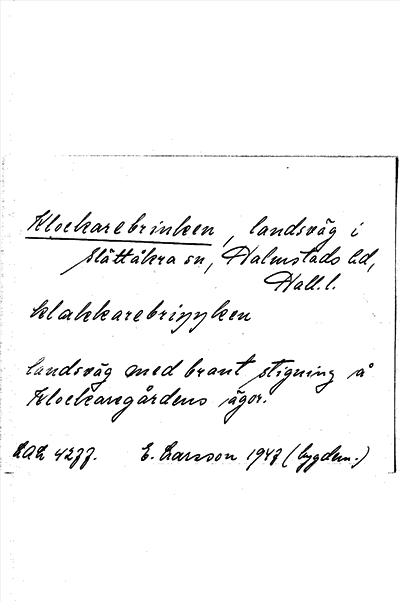 Klockarebrinken, landsväg i
Slättåkra sn, Halmstads hd,
Hall. l.
klakkarebriŋŋken
landsväg med brant stigning å
Klockaregårdens ägor.
LAL 4277. E. Larsson 1947 (bygdeu.)